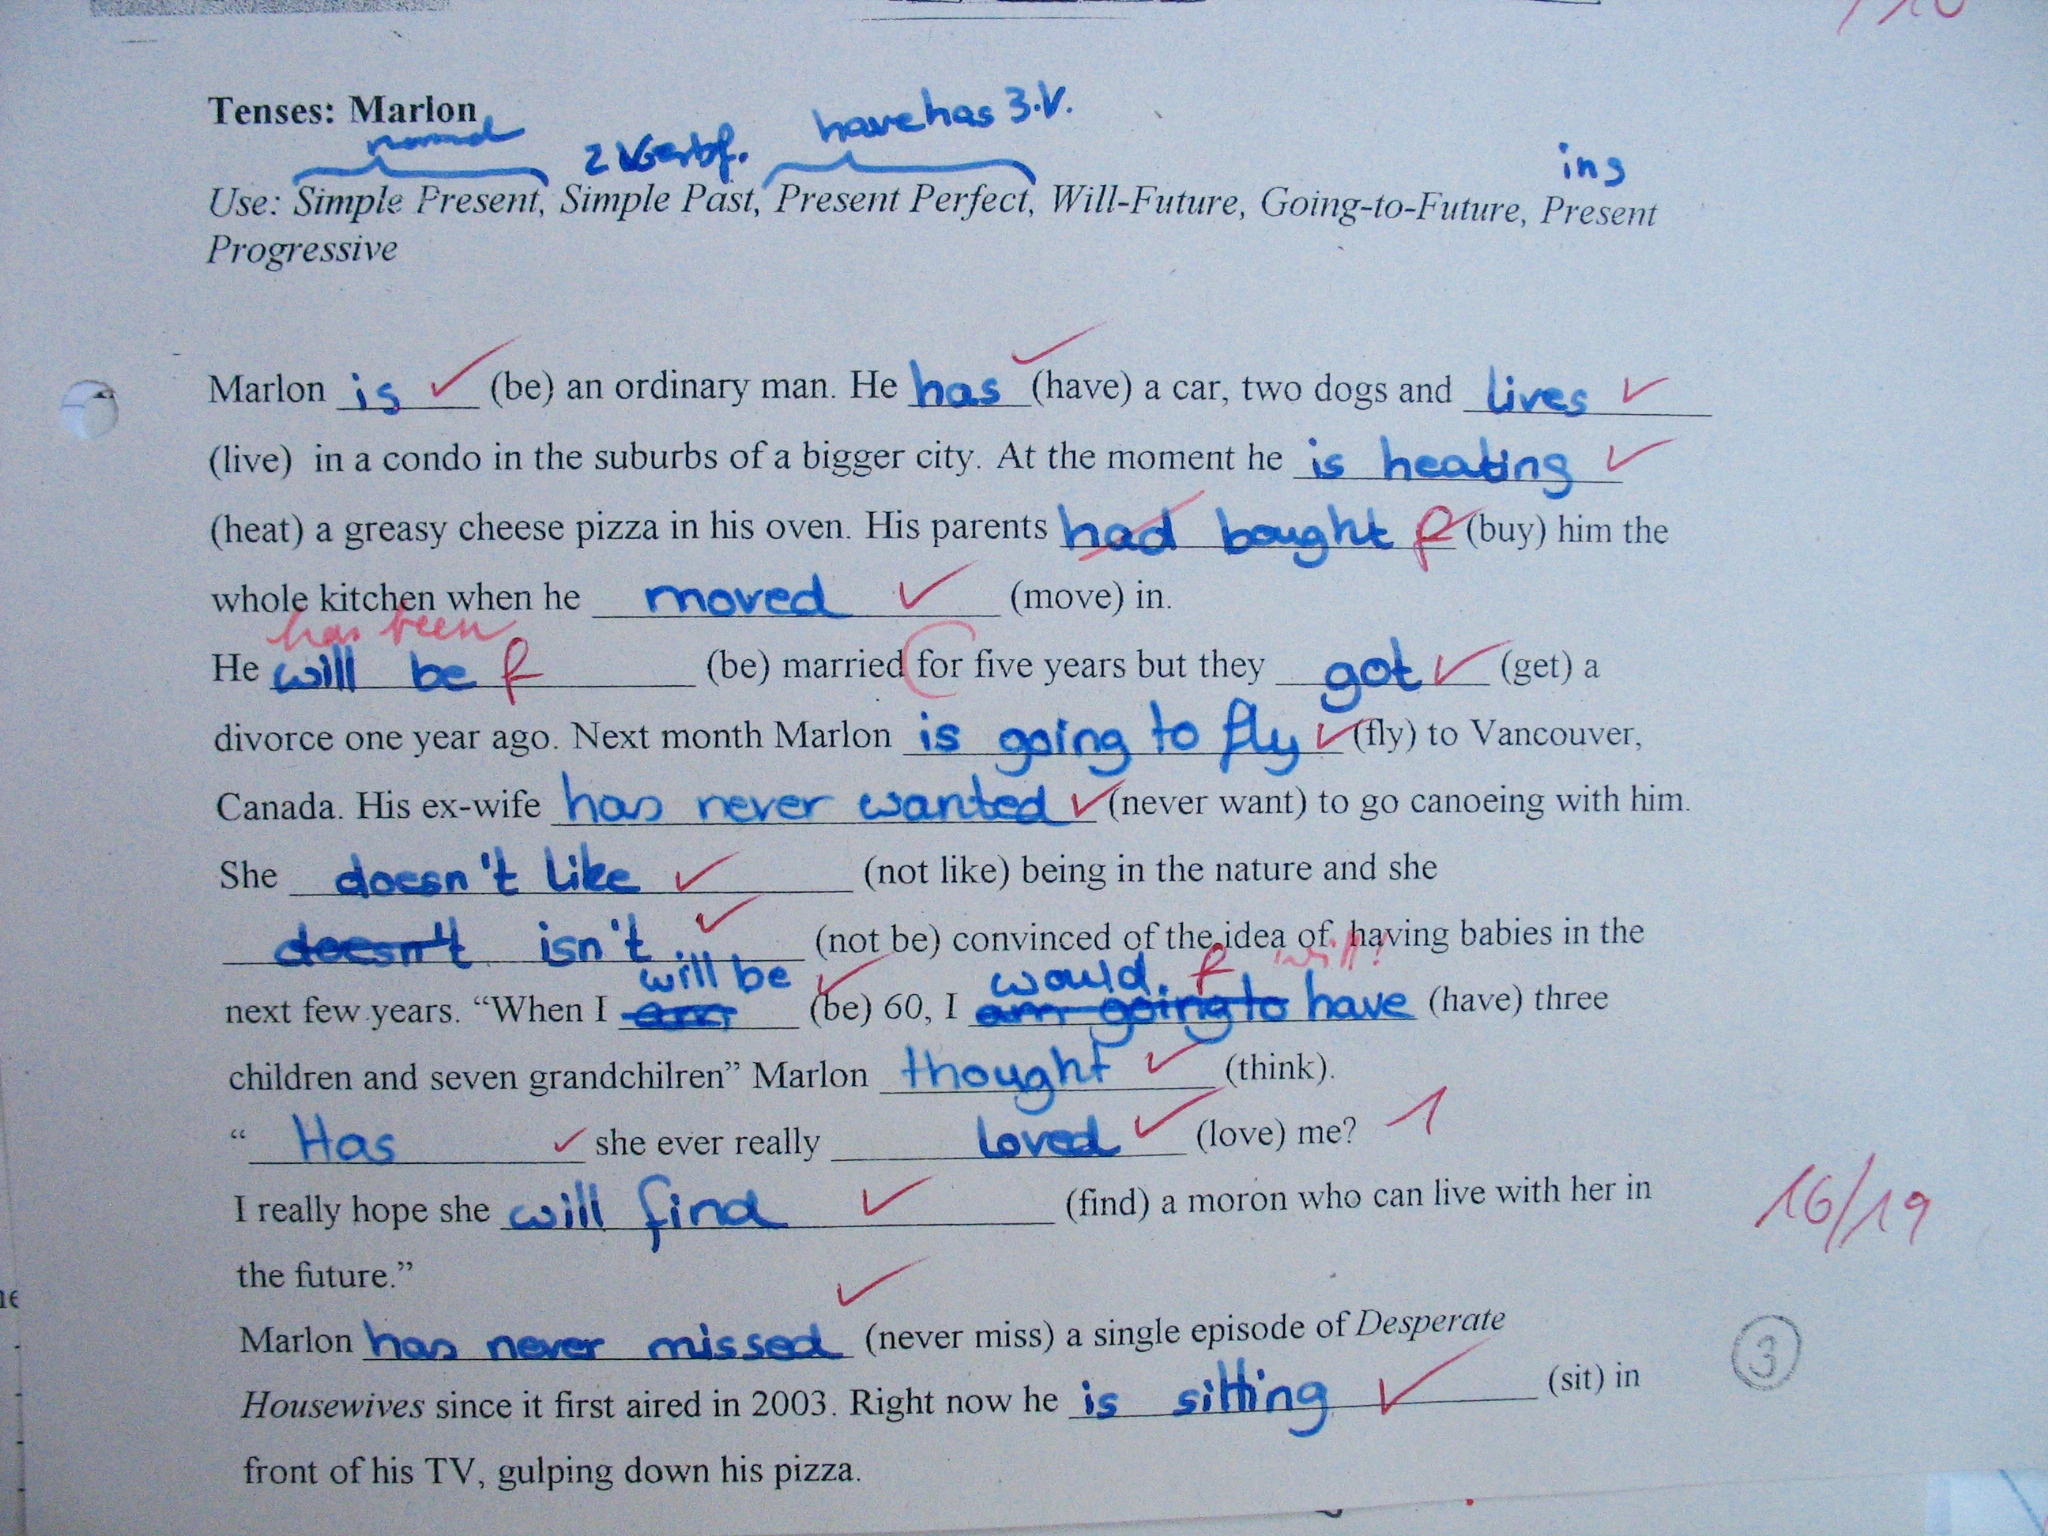 Tenses: Marlon
normal 2 Verbf. have has 3.V. ing
Use: Simple Present, Simple Past, Present Perfect, Will-Future, Going-to-Future, Present
Progressive
Marlon is (be) an ordinary man. He has (have) a car, two dogs and lives
(live) in a condo in the suburbs of a bigger city. At the moment he is heating
(heat) a greasy cheese pizza in his oven. His parents had bought f (buy) him the
whole kitchen when he moved (move) in.
has been
He will be f (be) married for five years but they got (get) a
divorce one year ago. Next month Marlon is going to fly (fly) to Vancouver,
Canada. His ex-wife has never wanted (never want) to go canoeing with him.
She doesn't like (not like) being in the nature and she
doesn't isn't (not be) convinced of the idea of having babies in the
will be would f will!
next few years. “When I am (be) 60, I am going to have (have) three
children and seven grandchilren” Marlon thought (think).
“ Has she ever really loved (love) me? 1
I really hope she will find (find) a moron who can live with her in
the future.”
16/19
Marlon has never missed (never miss) a single episode of Desperate
Housewives since it first aired in 2003. Right now he is sitting (sit) in
3
front of his TV, gulping down his pizza.